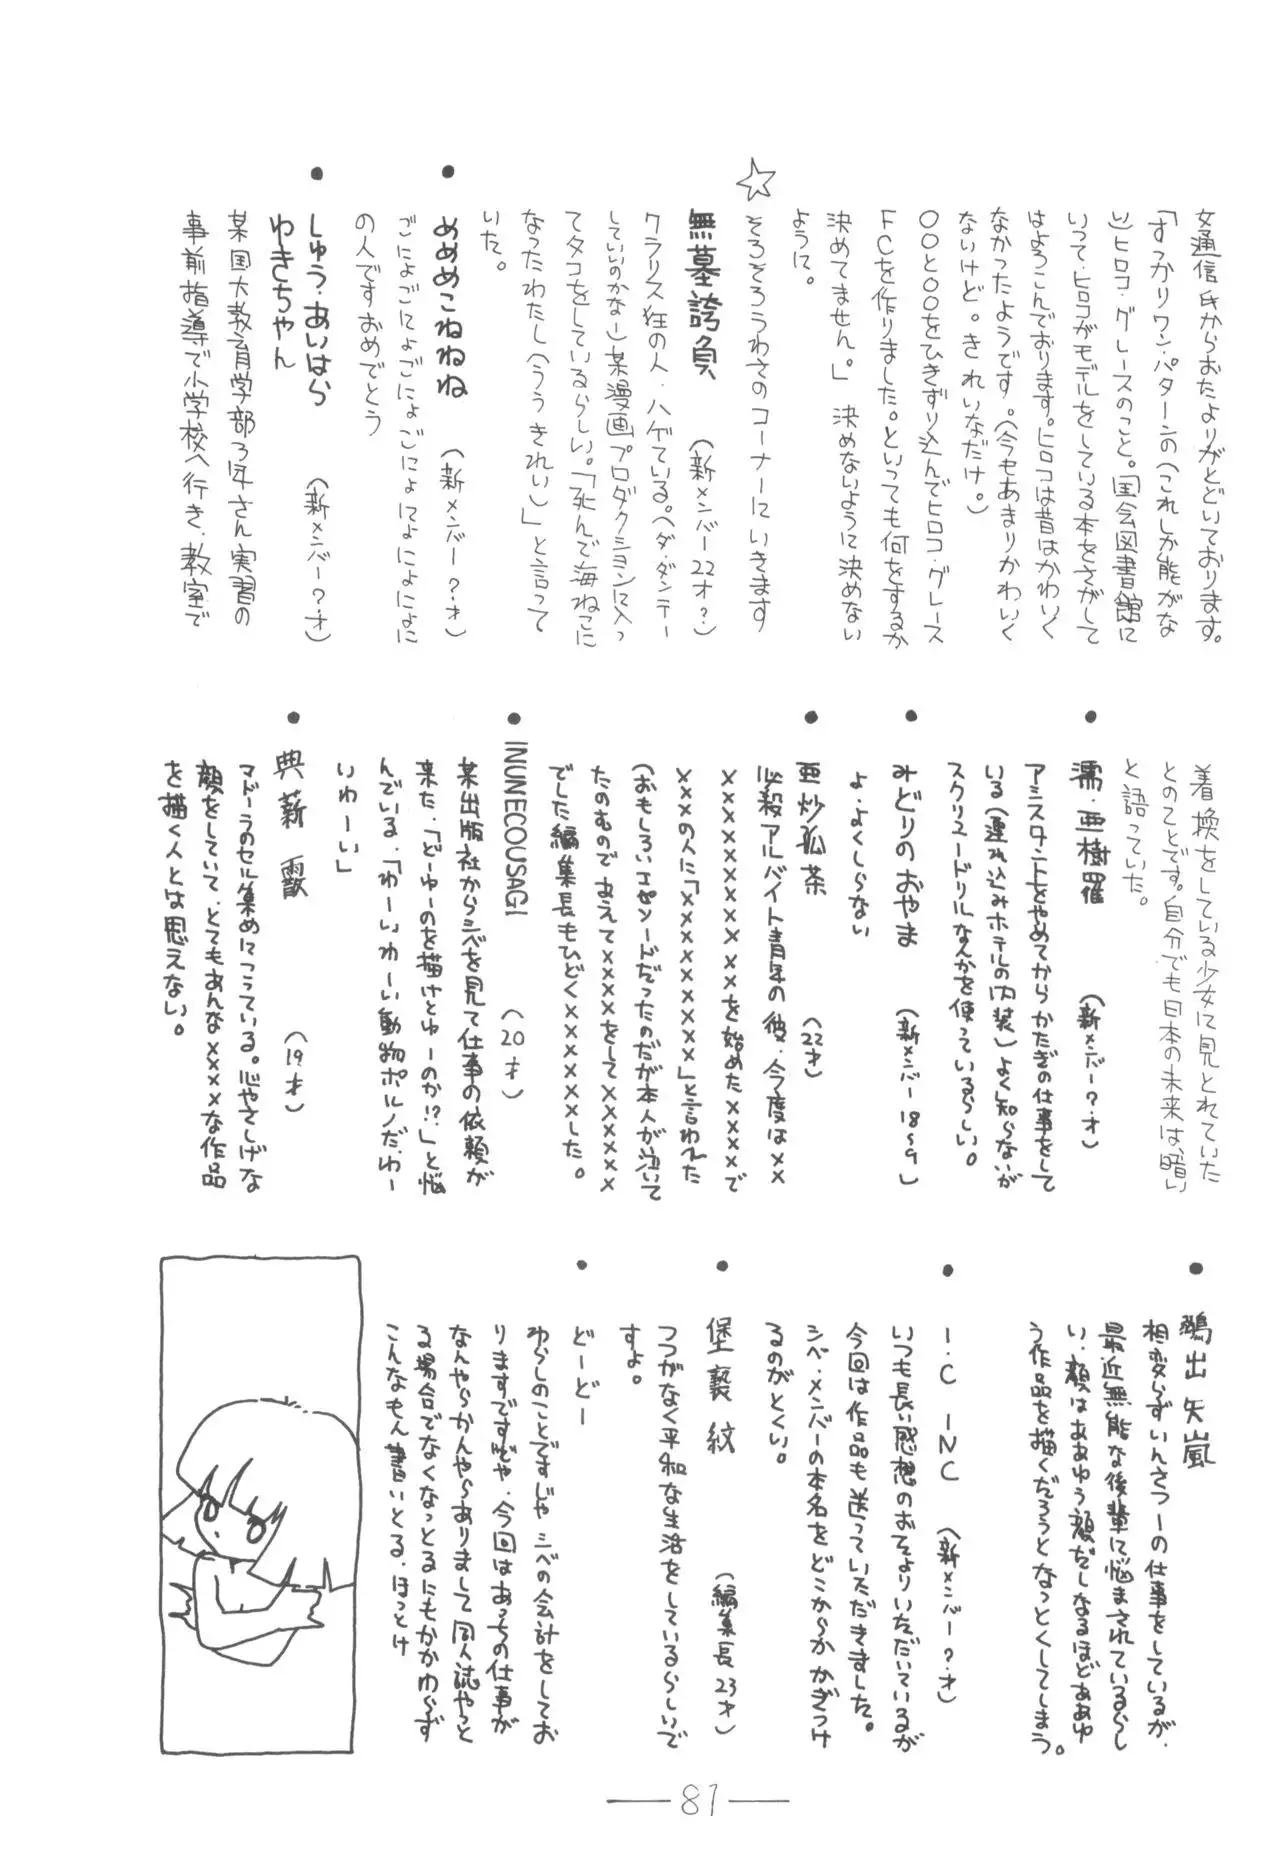 女通信氏からおたよりがとどいております。
「すっかりワンパターンの(これしか能がな
い)ヒロコ・グレースのこと。国会図書館に
いって、ヒロコがモデルをしている本をさがして
はよろこんでおります。ヒロコは昔はかわいく
なかったようです。(今もあまりかわいく
ないけど。きれいなだけ。)
○○と○○をひきずり込んでヒロコ・グレース
FCを作りました。といっても何をするか
決めてません。」決めないように決めない
ように。
☆そろそろうわさのコーナーにいきます
●無墓誇負 (新メンバー22才?)
クラリス狂の人・ハゲている。(ダ・ダンテー
していいのかなー)某漫画プロダクションに入っ
てタコをしているらしい。「死んで海ねこに
なったわたし(ううきれい)」と言って
いた。
●めめめこねねね (新メンバー?・才)
ごにょごにょごにょごにょによによによに
の人ですおめでとう
●しゅう・あいはら
わきちゃん (新メンバー?・才)
某国大教育学部3年さん実習の
事前指導で小学校へ行き、教室で
着換をしている少女に見とれていた
とのてとです。自分でも日本の未来は“暗い
と語っていた。
●濡・亜樹羅 (新メンバー?・才)
アシスタントをやめてから かたぎの仕事をして
いる(連れ込みホテルの内装)よく知らないが
スクリュードリルなんかを使っているらしい。
●みどりのおやま (新メンバー18〜9)
よ・よくしらない
●亜炒孤茶 (22才)
必殺アルバイト青年の彼・今度は××
××××××××××を始めた××××で
×××の人に「××××××××」と言われた
(おもしろいエピソードだったのだが本人が泣いて
たのむのであえて××××をして×××××
でした編集長もひどく××××××した。
●INUNECOUSAGI (20才)
某出版社からシベを見て仕事の依頼が
来た・「どーゆーのを描けとゆーのか!?」と悩
んでいる・「わーいわーい動物ポルノだ、わー
いわーい」
●典薪 (19才)
マドーラのセル集めにこっている。心やさしげな
顔をしていて、とてもあんな××××な作品
を描く人とは思えない。
●出矢嵐
相変らずいんさつーの仕事をしているが、
最近無能な後輩に悩まされているらし
い・顔はああゆう顔だしなるほどああゆ
う作品を描くだろうとなっとくしてしまう。
●I・C INC (新メンバー?・才)
いつも長い感想のおてよりいただいているが
今回は作品も送っていただきました。
シベ・メンバーの本名をどこからか かぎつけ
るのがとくい。
●堡褻紋 (編集長23才)
つつがなく平和な生活をしているらしいで
すよ。
●どーどー
わらしのことですじゃ シベの会計をしてお
りますですじゃ・今回はあっちの仕事が
なんやらかんやらありまして同人誌やっと
る場合でなくなっとるにもかかわらず
こんなもん書いとる・ほっとけ
81